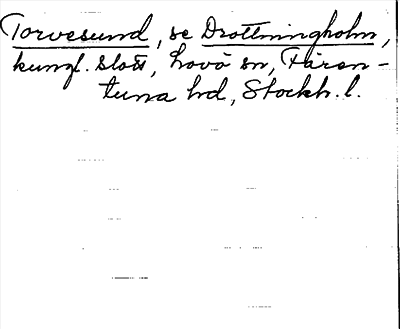 Torvesund, se Drottningholm,
kungl. slott, Lovö sn, Fären-
tuna hd, Stockh. l.